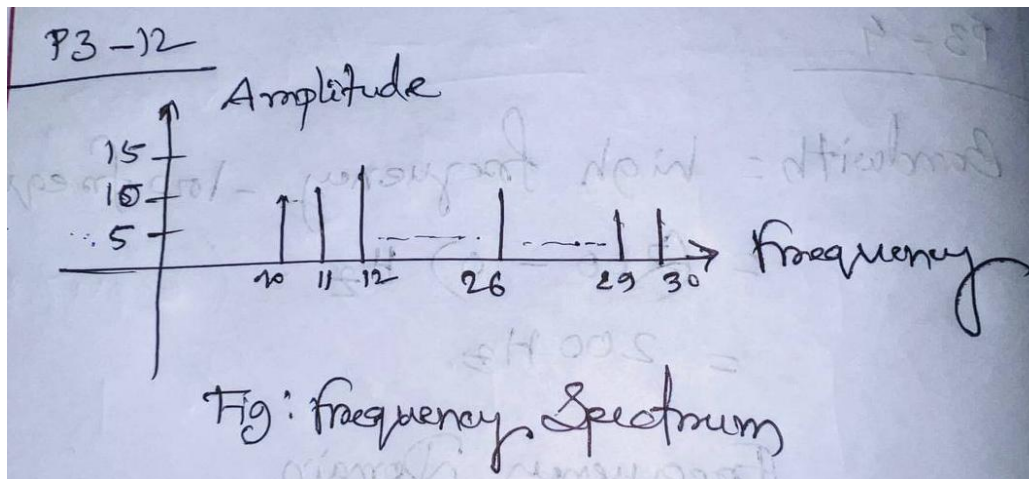 P3-12
Amplitude
15
10
5
10 11 12 26 29 30
Frequency
Fig: Frequency Spectrum